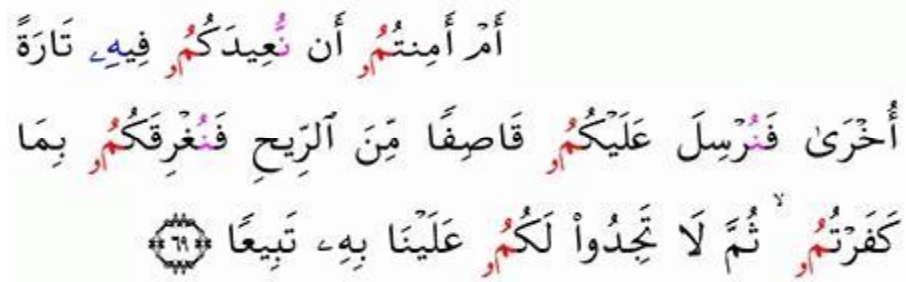 أَمۡ أَمِنتُمُۥ أَن نُّعِيدَكُمُۥ فِيهِۦ تَارَةً
أُخۡرَىٰ فَنُرۡسِلَ عَلَيۡكُمُۥ قَاصِفًا مِّنَ ٱلرِّيحِ فَنُغۡرِقَكُمُۥ بِمَا
كَفَرۡتُمُۥ ۙ ثُمَّ لَا تَجِدُواْ لَكُمُۥ عَلَيۡنَا بِهِۦ تَبِيعًا ٦٩